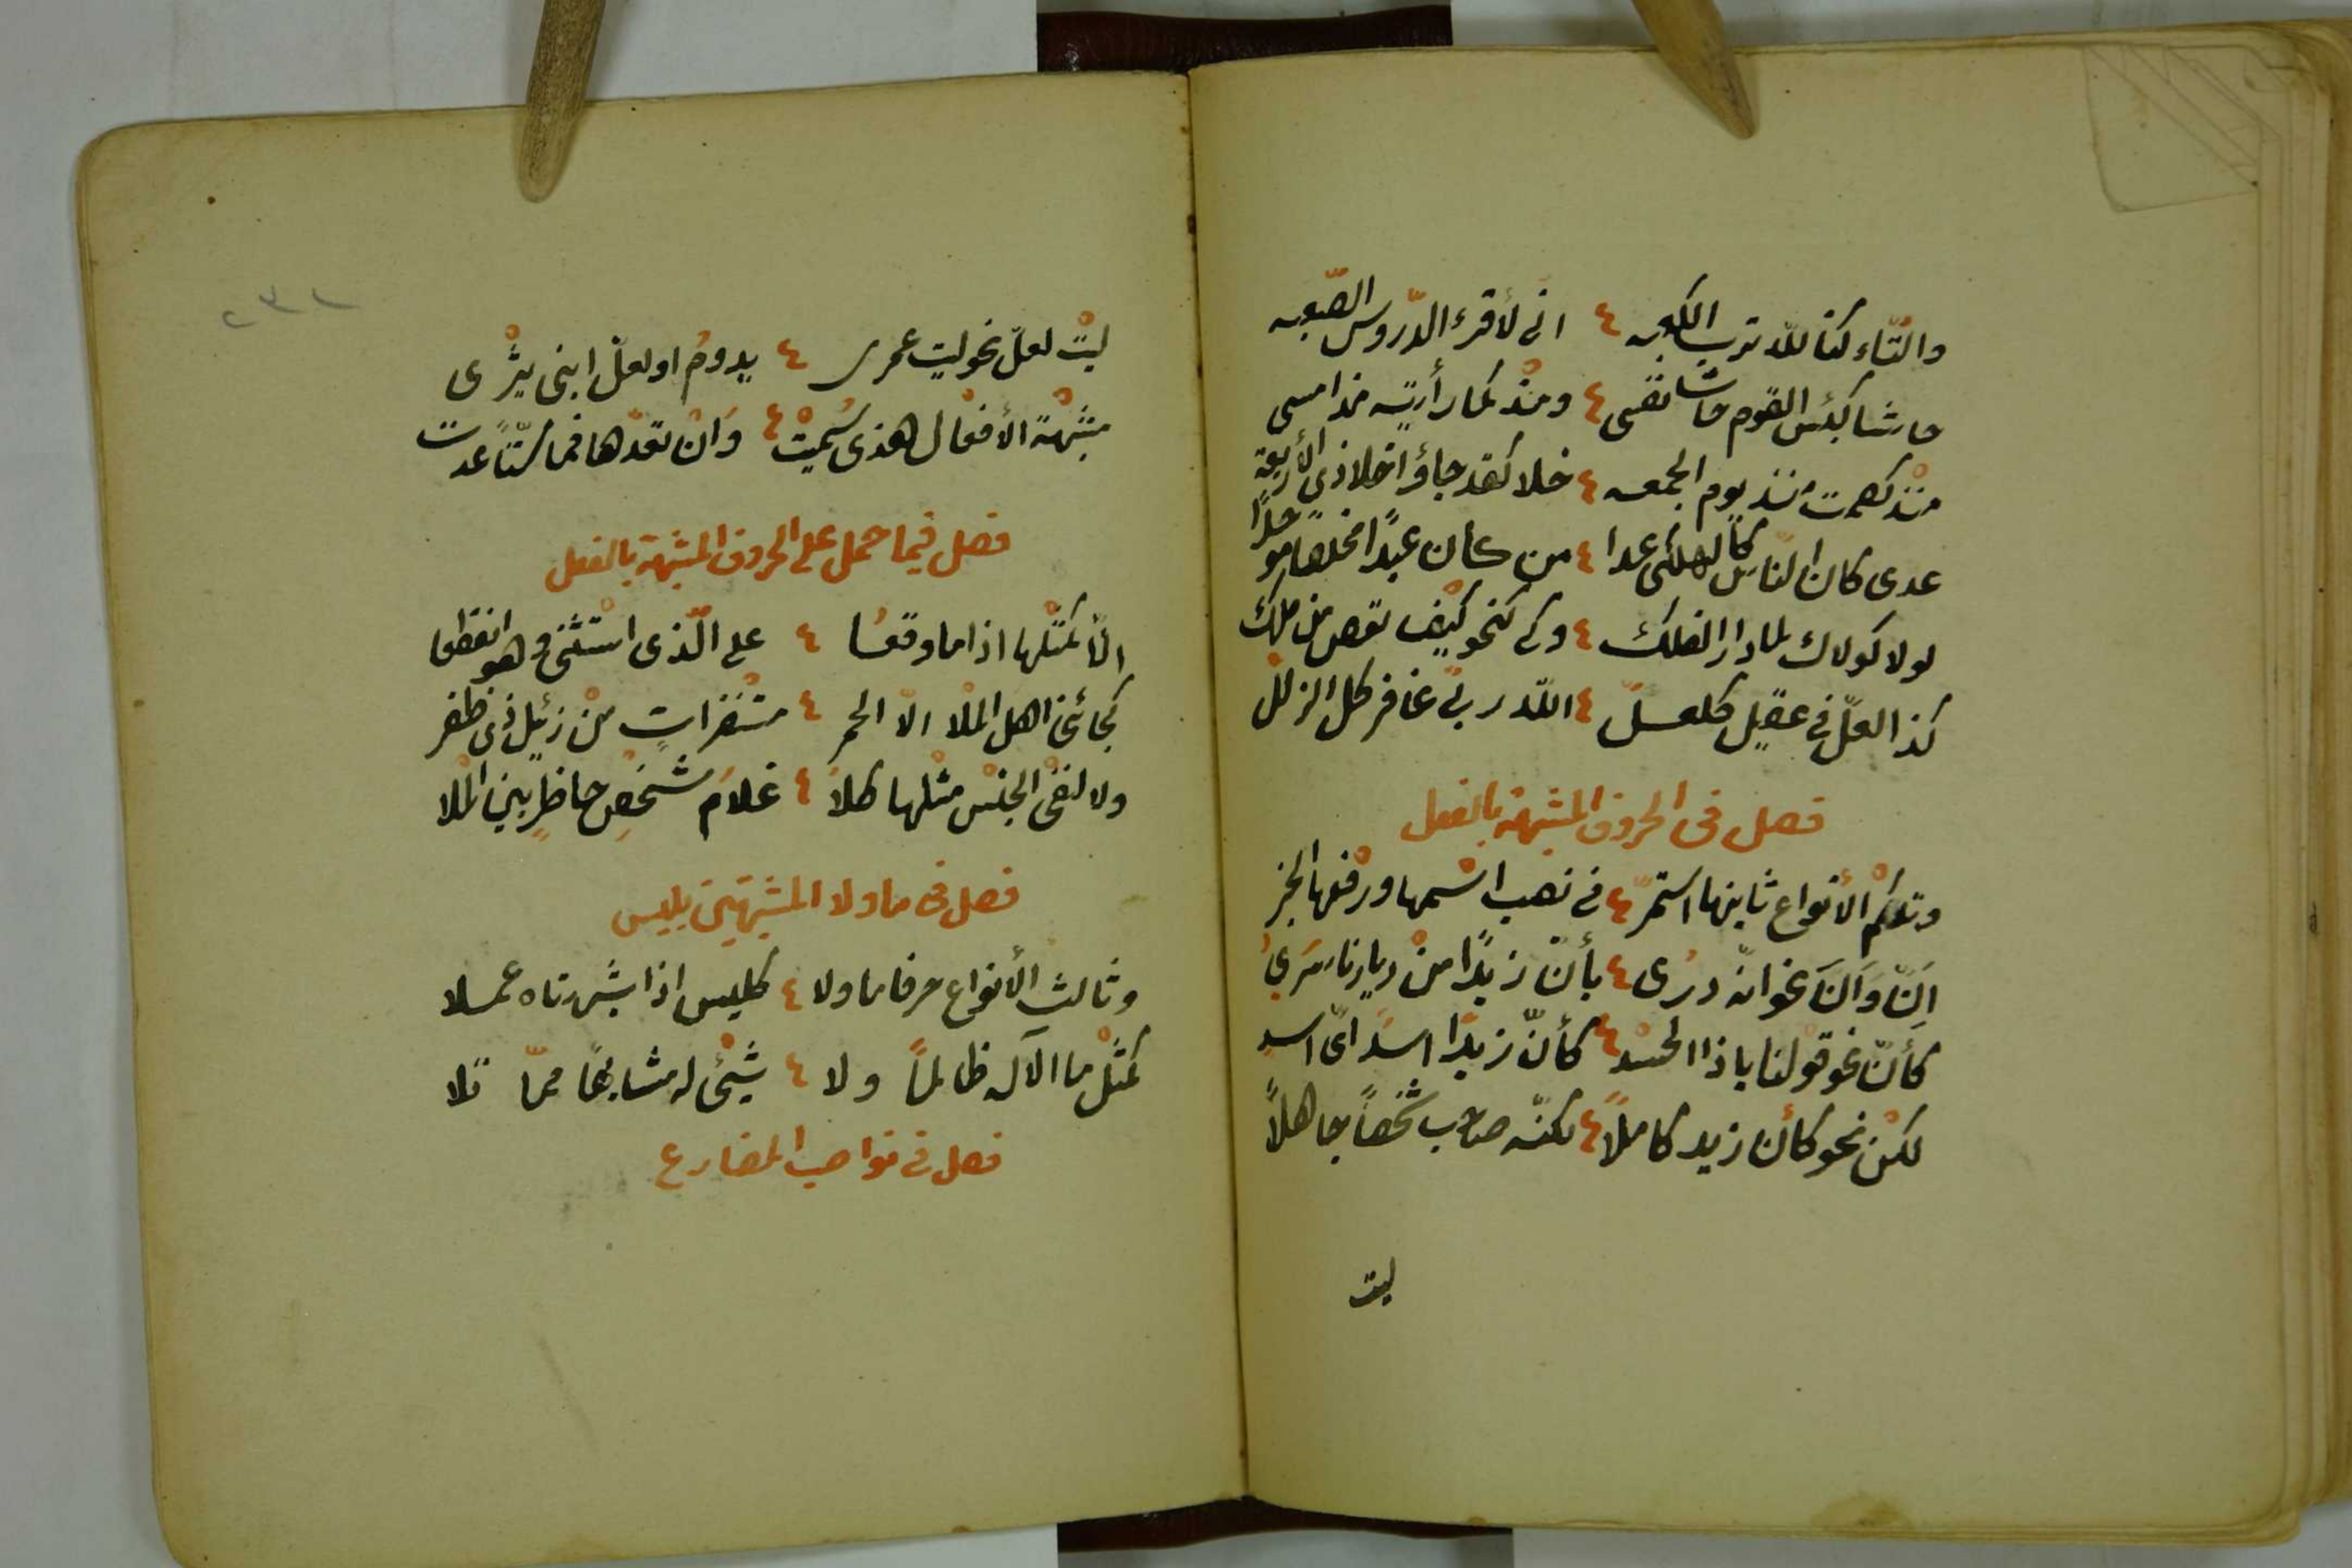 والتّاء كتاللّه تربّ الكعبه ٤ انى لأقرء الدّروس الصّعبه
حاشا كبئس القوم حاشا نفسى ٤ ومذ كما رأيته مذ امسى
منذ كصمت منذ يوم الجمعه ٤ خلا كقد جاؤا خلا ذى الأربعة
عدى كان النّاس كالهلكى عدا ٤ من كان عبدًا مخلصا موحدًا
لولا كولاك لما دار الفلك ٤ وكى كنحو كيف تعص من ملك
كذا لعلّ فى عقيل كلعلّ ٤ اللّه ربّى غافر كل الزلل
فصل فى الحروف المشبهة بالفعل
وتلكم الأنواع ثانيها استمرّ ٤ فى نصب اسمها ورفعها الخبر
اِنّ وَاَنّ نحو انّه درى ٤ بأنّ زيدًا من ديارنا سَرىُ
كأنّ نحو قولنا ياذا الحسد ٤ كأنّ زيدًا اسدًا اىّ اسد
لكن نحو كأن زيد كاملاً ٤ لكنّه صاحب شخصاً جاهلاً
ليت
٢٣٢
ليت لعلّ نحو ليت عمرى ٤ يدوم او لعلّ ابنى يثرى
مشبهة الأفعال هذى سُميت ٤ وَان تعدّها فما ستّا عدت
فصل فيما حمل على الحروف المشبهة بالفعل
الّا كمثلها اذا ما وقعا ٤ على الّذى استثنى وهو انقطعا
كجائنى اهل الملا الّا الحمر ٤ مستنفرات من زئيل ذى ظفر
ولا لنفى الجنس مثلها كلا ٤ غلام شخص حاظر بين الملا
فصل فى ما ولا المشبهتين بليس
وثالث الأنواع حرفا ما ولا ٤ كليس اذا شبهتاه عملا
كمثل ما الآله ظالمًا ولا ٤ شيئ له مشابهًا ممّا تلا
فصل فى نواصب المضارع